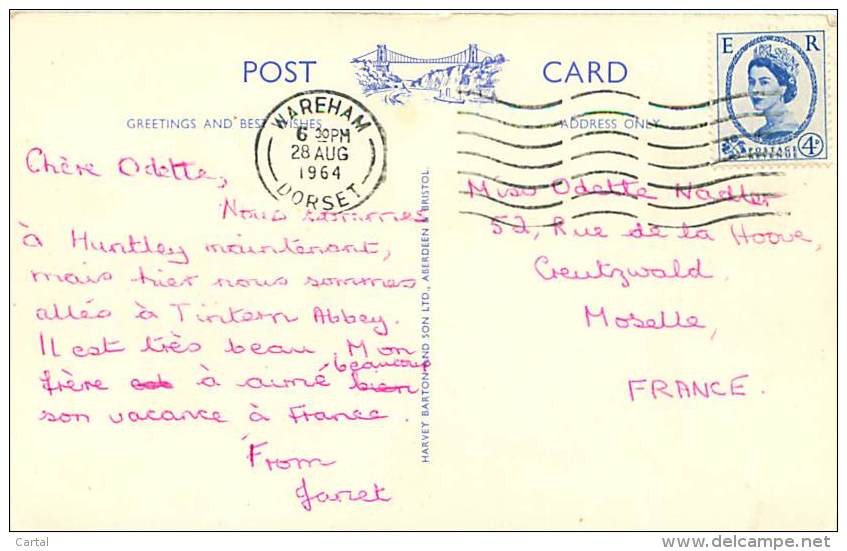 POST CARD
GREETINGS AND BEST WISHES
ADDRESS ONLY
E R
POSTAGE
REVENUE
4D
WAREHAM
6 30PM
28 AUG
1964
DORSET
Chère Odette,
Nous sommes
à Huntley maintenant,
mais hier nous sommes
allés à Tintern Abbey.
Il est très beau. Mon
frère est à aimé bien beaucoup
son vacance à France.
From
Janet
HARVEY BARTON AND SON LTD., ABERDEEN & BRISTOL.
Miss Odette Nadler
52, Rue de la Hoove,
Creutzwald
Moselle,
FRANCE.
- Cartal -
www.delcampe.net